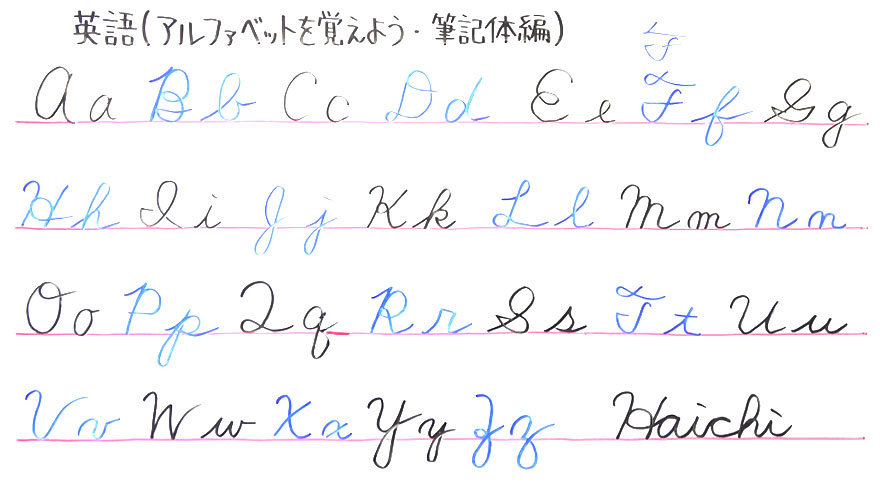 英語(アルファベットを覚えよう・筆記体編)
F
Aa Bb Cc Dd Ee Ff Gg
Hh Ii Jj Kk Ll Mm Nn
Oo Pp Qq Rr Ss Tt Uu
Vv Ww Xx Yy Zz Haichi